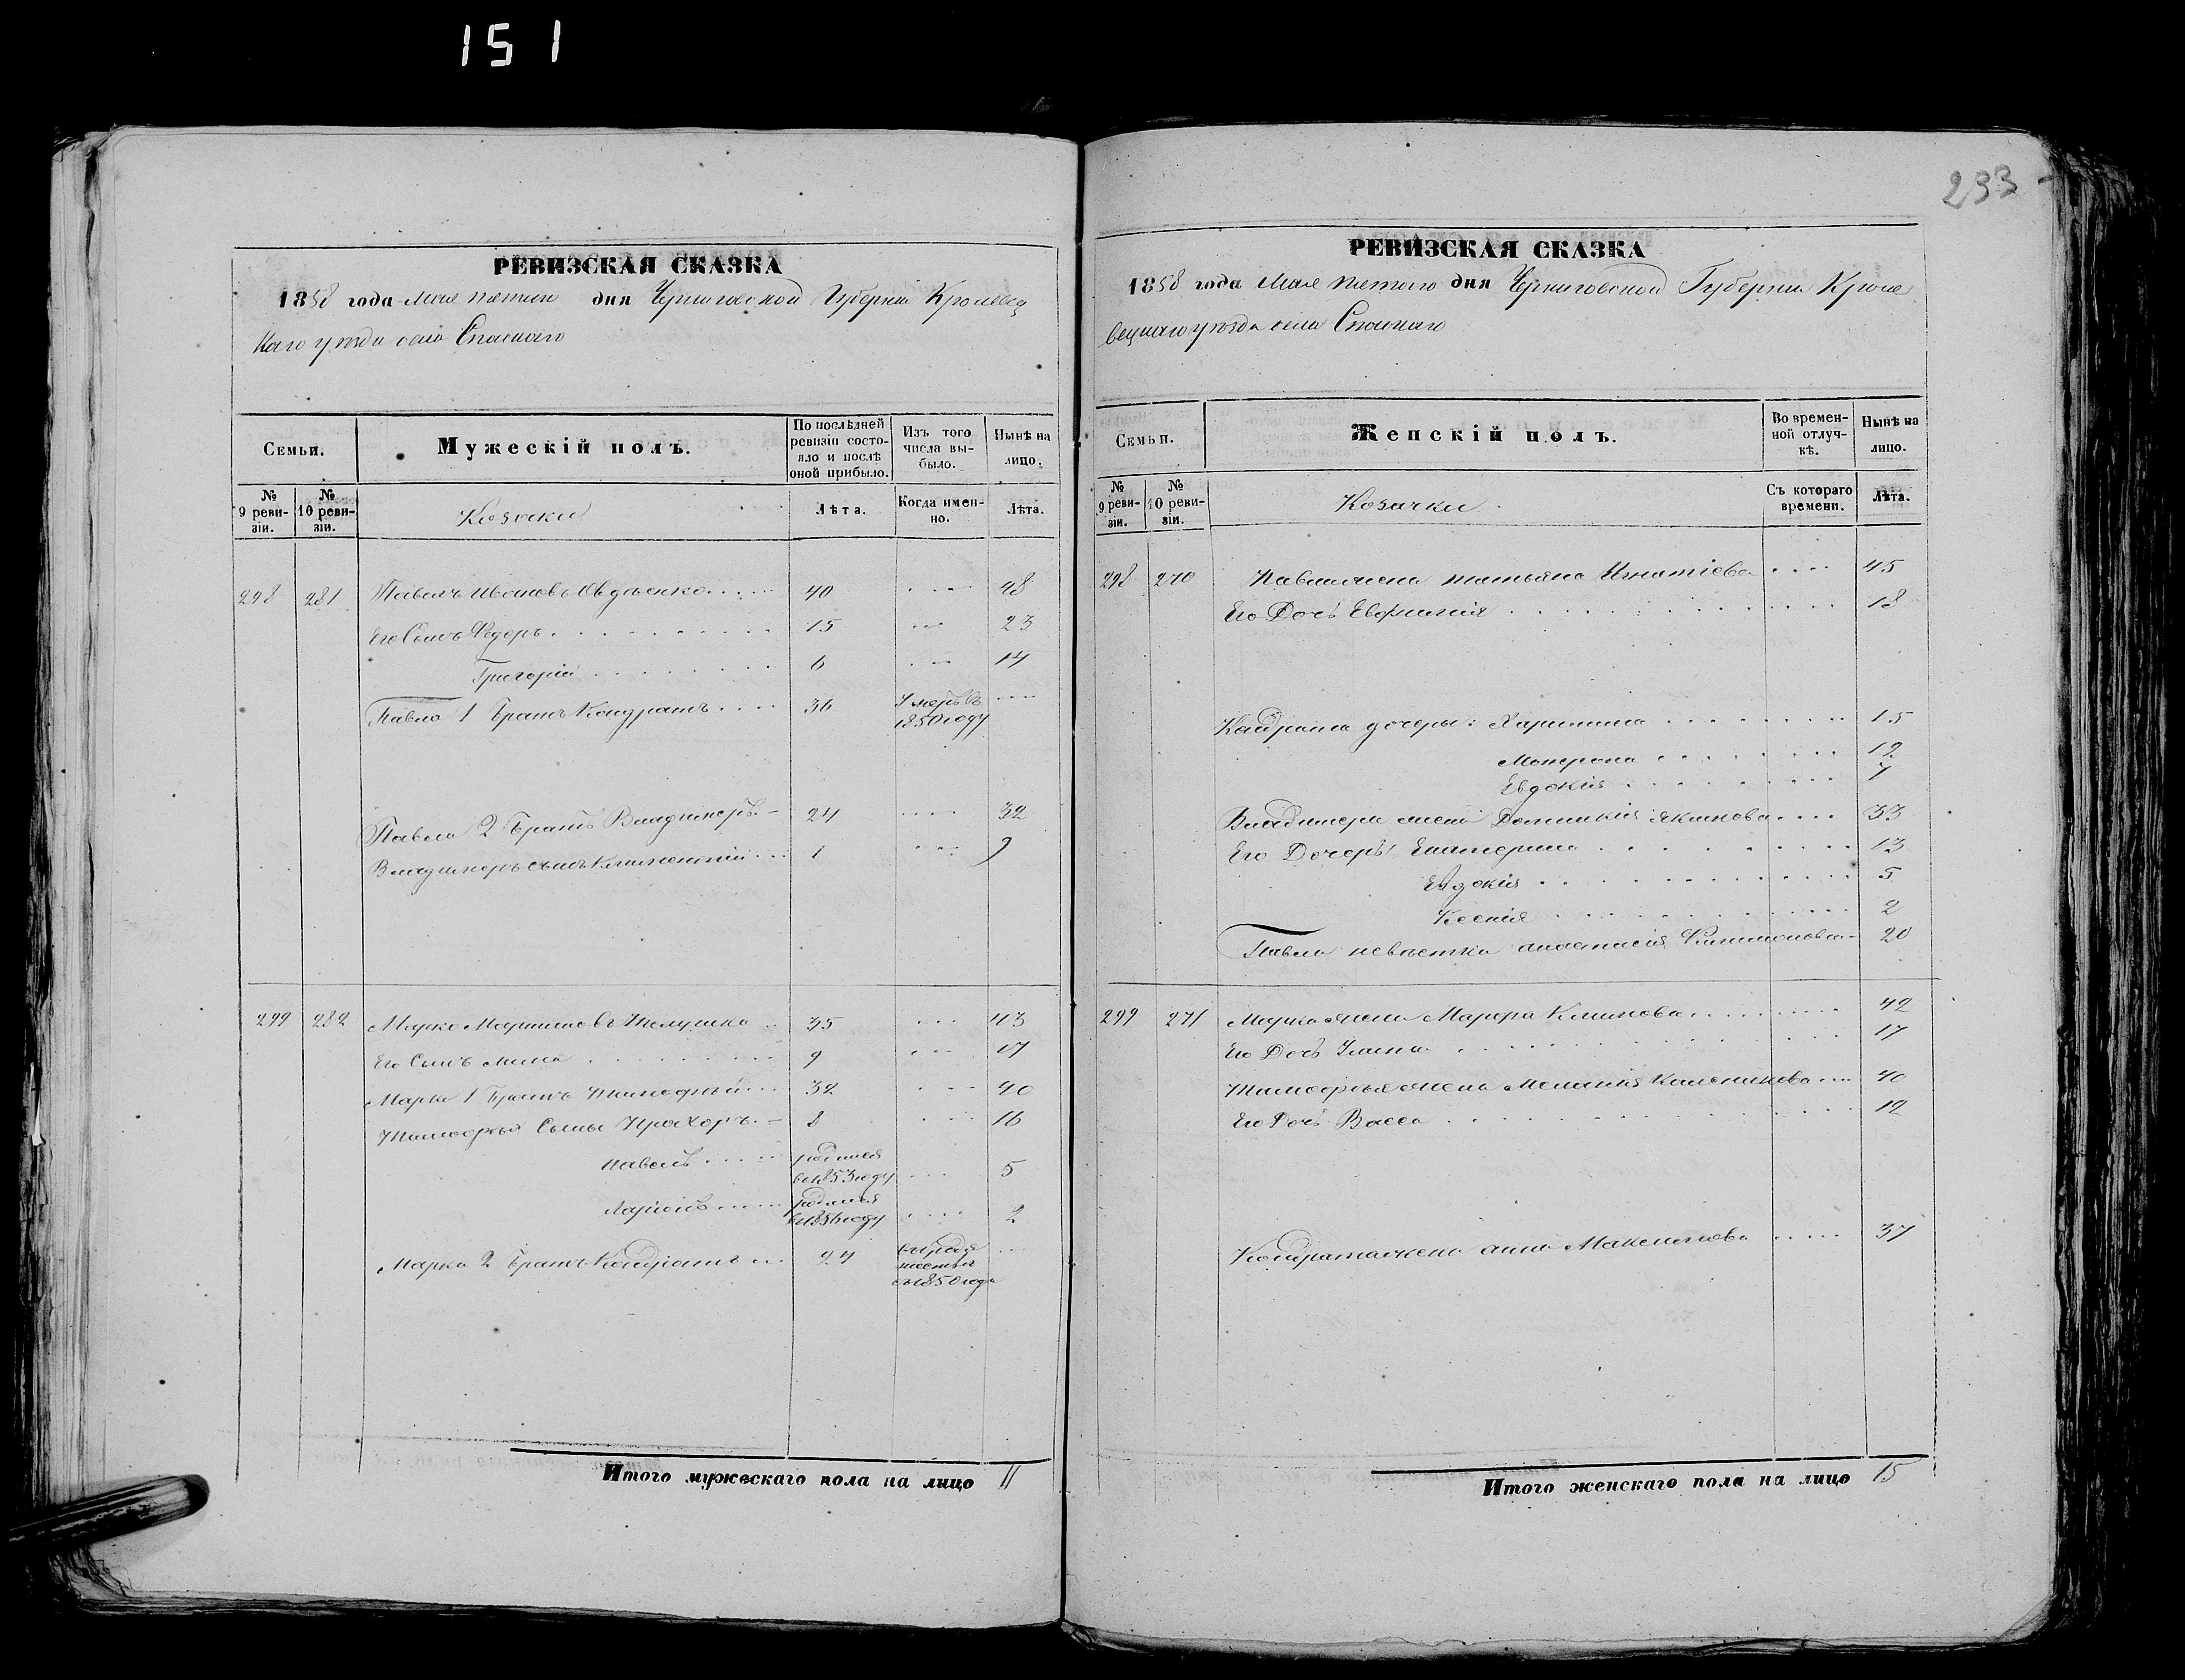 151
233
РЕВИЗСКАЯ СКАЗКА
1858 года Мая пятого дня Черниговской Губерніи Кролевец
каго уезда села Спаского
Семьи.
Мужескій полъ.
По послѣдней ревизіи состояло и послѣ оной прибыло.
Изъ того числа выбыло.
Нынѣ на лицо.
№ 9 ревизіи.
№ 10 ревизіи.
Козаки
Лѣта.
Когда именно.
Лѣта.
298 281 Павелъ Ивановъ Овдѣенко 40 48
Его Сынъ Федоръ 15 23
Григорій 6 14
Павла 1 Братъ Кондратъ 36 Умеръ въ 1850 году
Павла 2 Братъ Владимеръ 24 32
Владимеръ сынъ 1 9
299 282 Марко Мартиновъ 35 43
Его Сынъ Мина 9 17
Марка 1 Братъ Тимофей 32 40
Тимофея Сыны Прохоръ 8 16
Павелъ родился в 1853 году 5
Ларионъ родился в 1856 году 2
Марка 2 Братъ Кондратъ 24 1850 года
Итого мужескаго пола на лицо 11
РЕВИЗСКАЯ СКАЗКА
1858 года Мая пятого дня Черниговской Губерніи Кроле
вецкаго уезда села Спаского
Семьи.
Женскій полъ.
Во временной отлучкѣ.
Нынѣ на лицо.
№ 9 ревизіи.
№ 10 ревизіи.
Козачки
Съ котораго времени.
Лѣта.
298 270 Павла жена Татьяна Игнатіева 45
Его Дочь Евфимия 18
Кондрата дочеры: Харитина 15
Мотрона 12
Евдокія 7
Владимера жена Домникія Якимова 33
Его Дочеры Екатерина 13
Евдокія 5
Ксенія 2
Павла невѣстка Анастасія 20
299 271 Марка жена Марфа Климова 42
Его Дочь Улияна 17
Тимофея жена Меланія 40
Его Дочь Васса 12
Кондрата жена Анна Максимова 37
Итого женскаго пола на лицо 15